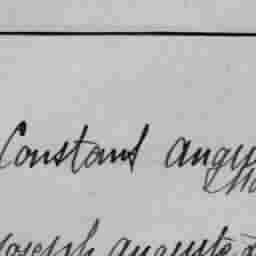 Constant Augu
Joseph auguste